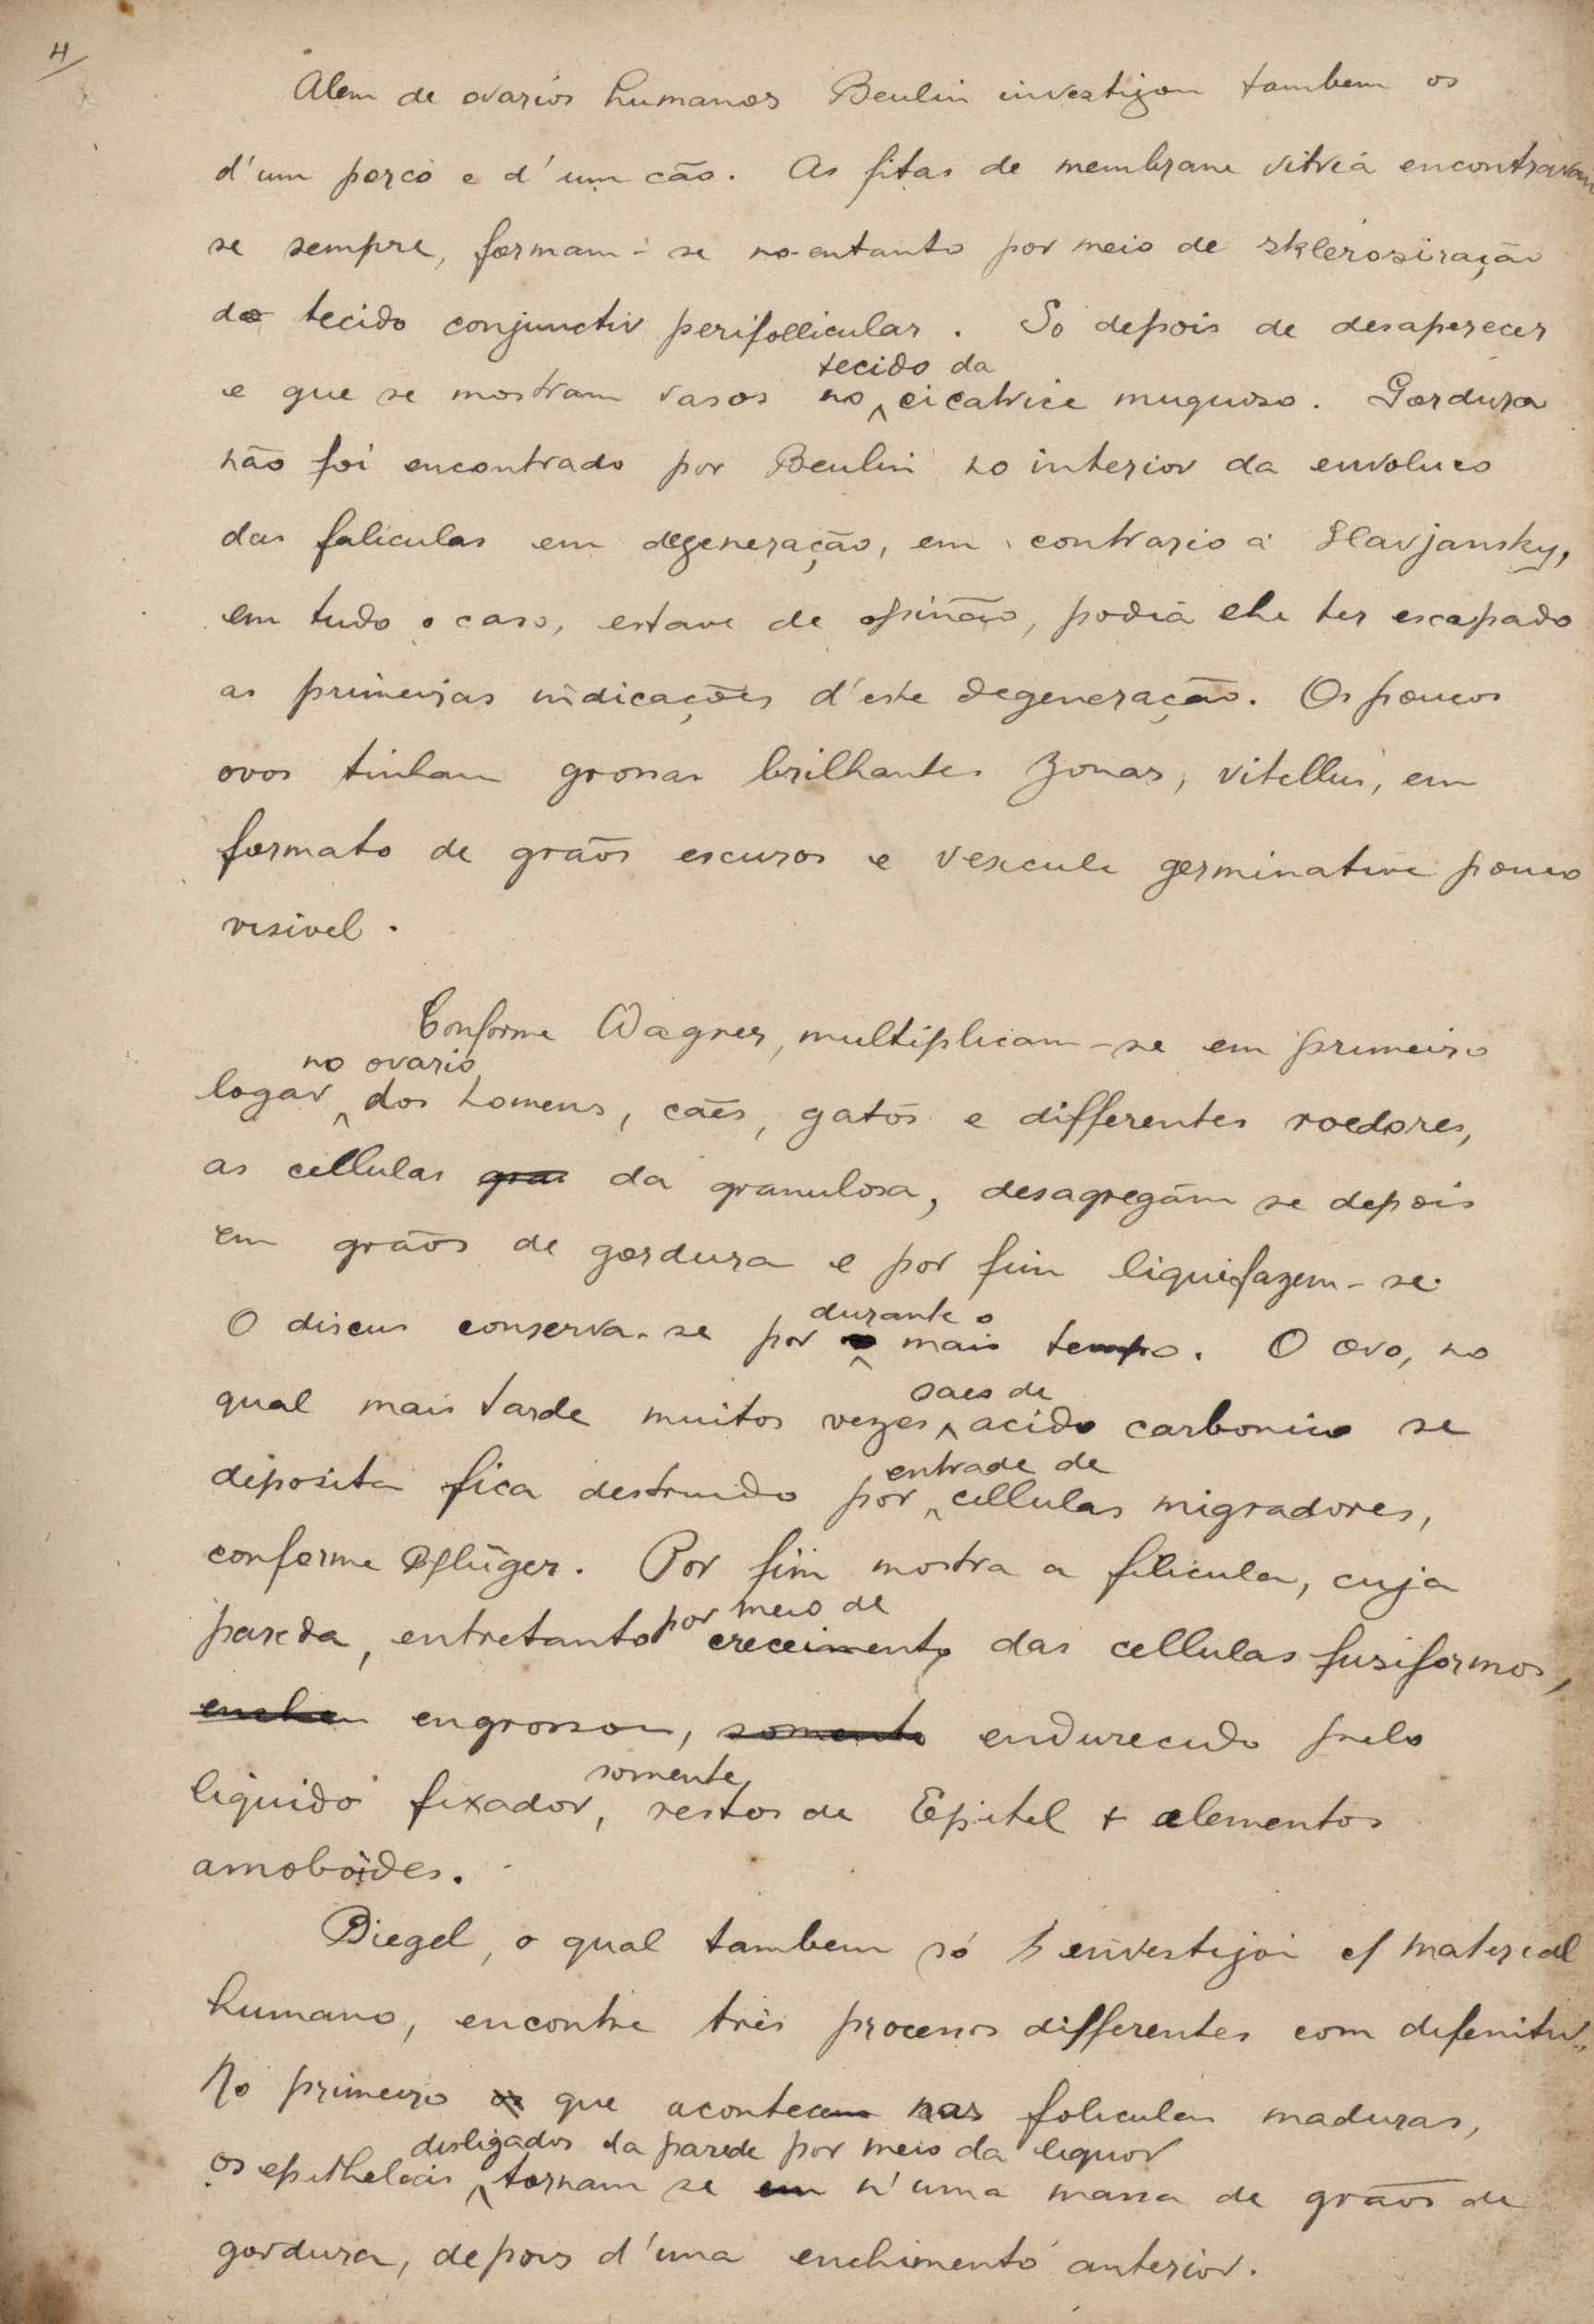 4/
Alem de ovarios humanos Beulin investigou tambem os
d'um porco e d'um cão. As fitas de membrane vitria encontravam
se sempre, formam-se no-entanto por meio de sklerosiração
do tecido conjunctiv perifollicular. So depois de desaperecer
tecido da
e que se mostram vasos no cicatrice muquoso. Gordura
não foi encontrado por Beulin no interior da envoluco
das foliculas em degeneração, em contrario a Slavjansky,
em tudo o caso, estave de opinão, podia elle ter escapado
as primeiras indicações d'este degeneração. Os poucos
ovos tinham grossas brilhantes zonas, vitellus, em
formato de grãos escuros e vesicule germinative pouco
visivel.
Conforme Wagner, multiplicam-se em primeiro
no ovario
logar dos homens, cães, gatos e differentes roedores,
as cellulas gra da granulosa, desagregam se depois
em grãos de gordura e por fim liquifazem-se.
O discus conserva-se por durante o mais tempo. O ovo, no
saes de
qual mais tarde muitos vezes acido carbonico se
entrade de
diposita fica destruido por cellulas migradores,
conforme Pflüger. Por fim mostra a filicula, cuja
por meio de
pareda, entretanto creceimento das cellulas fusiformos,
enche engrossou, somente endurecido pelo
somente
liquido fixador, restos de Epitel + elementos
amoboides.
Biegel, o qual tambem só investigoi c/ material
humano, encontre três processos differentes com difenitiv.
No primeiro os que acontecem nas foliculas maduras,
desligados da parede por meio da liquor
os epitheleais tornam se em n'uma massa de grãos de
gordura, depois d'uma enchimento anterior.